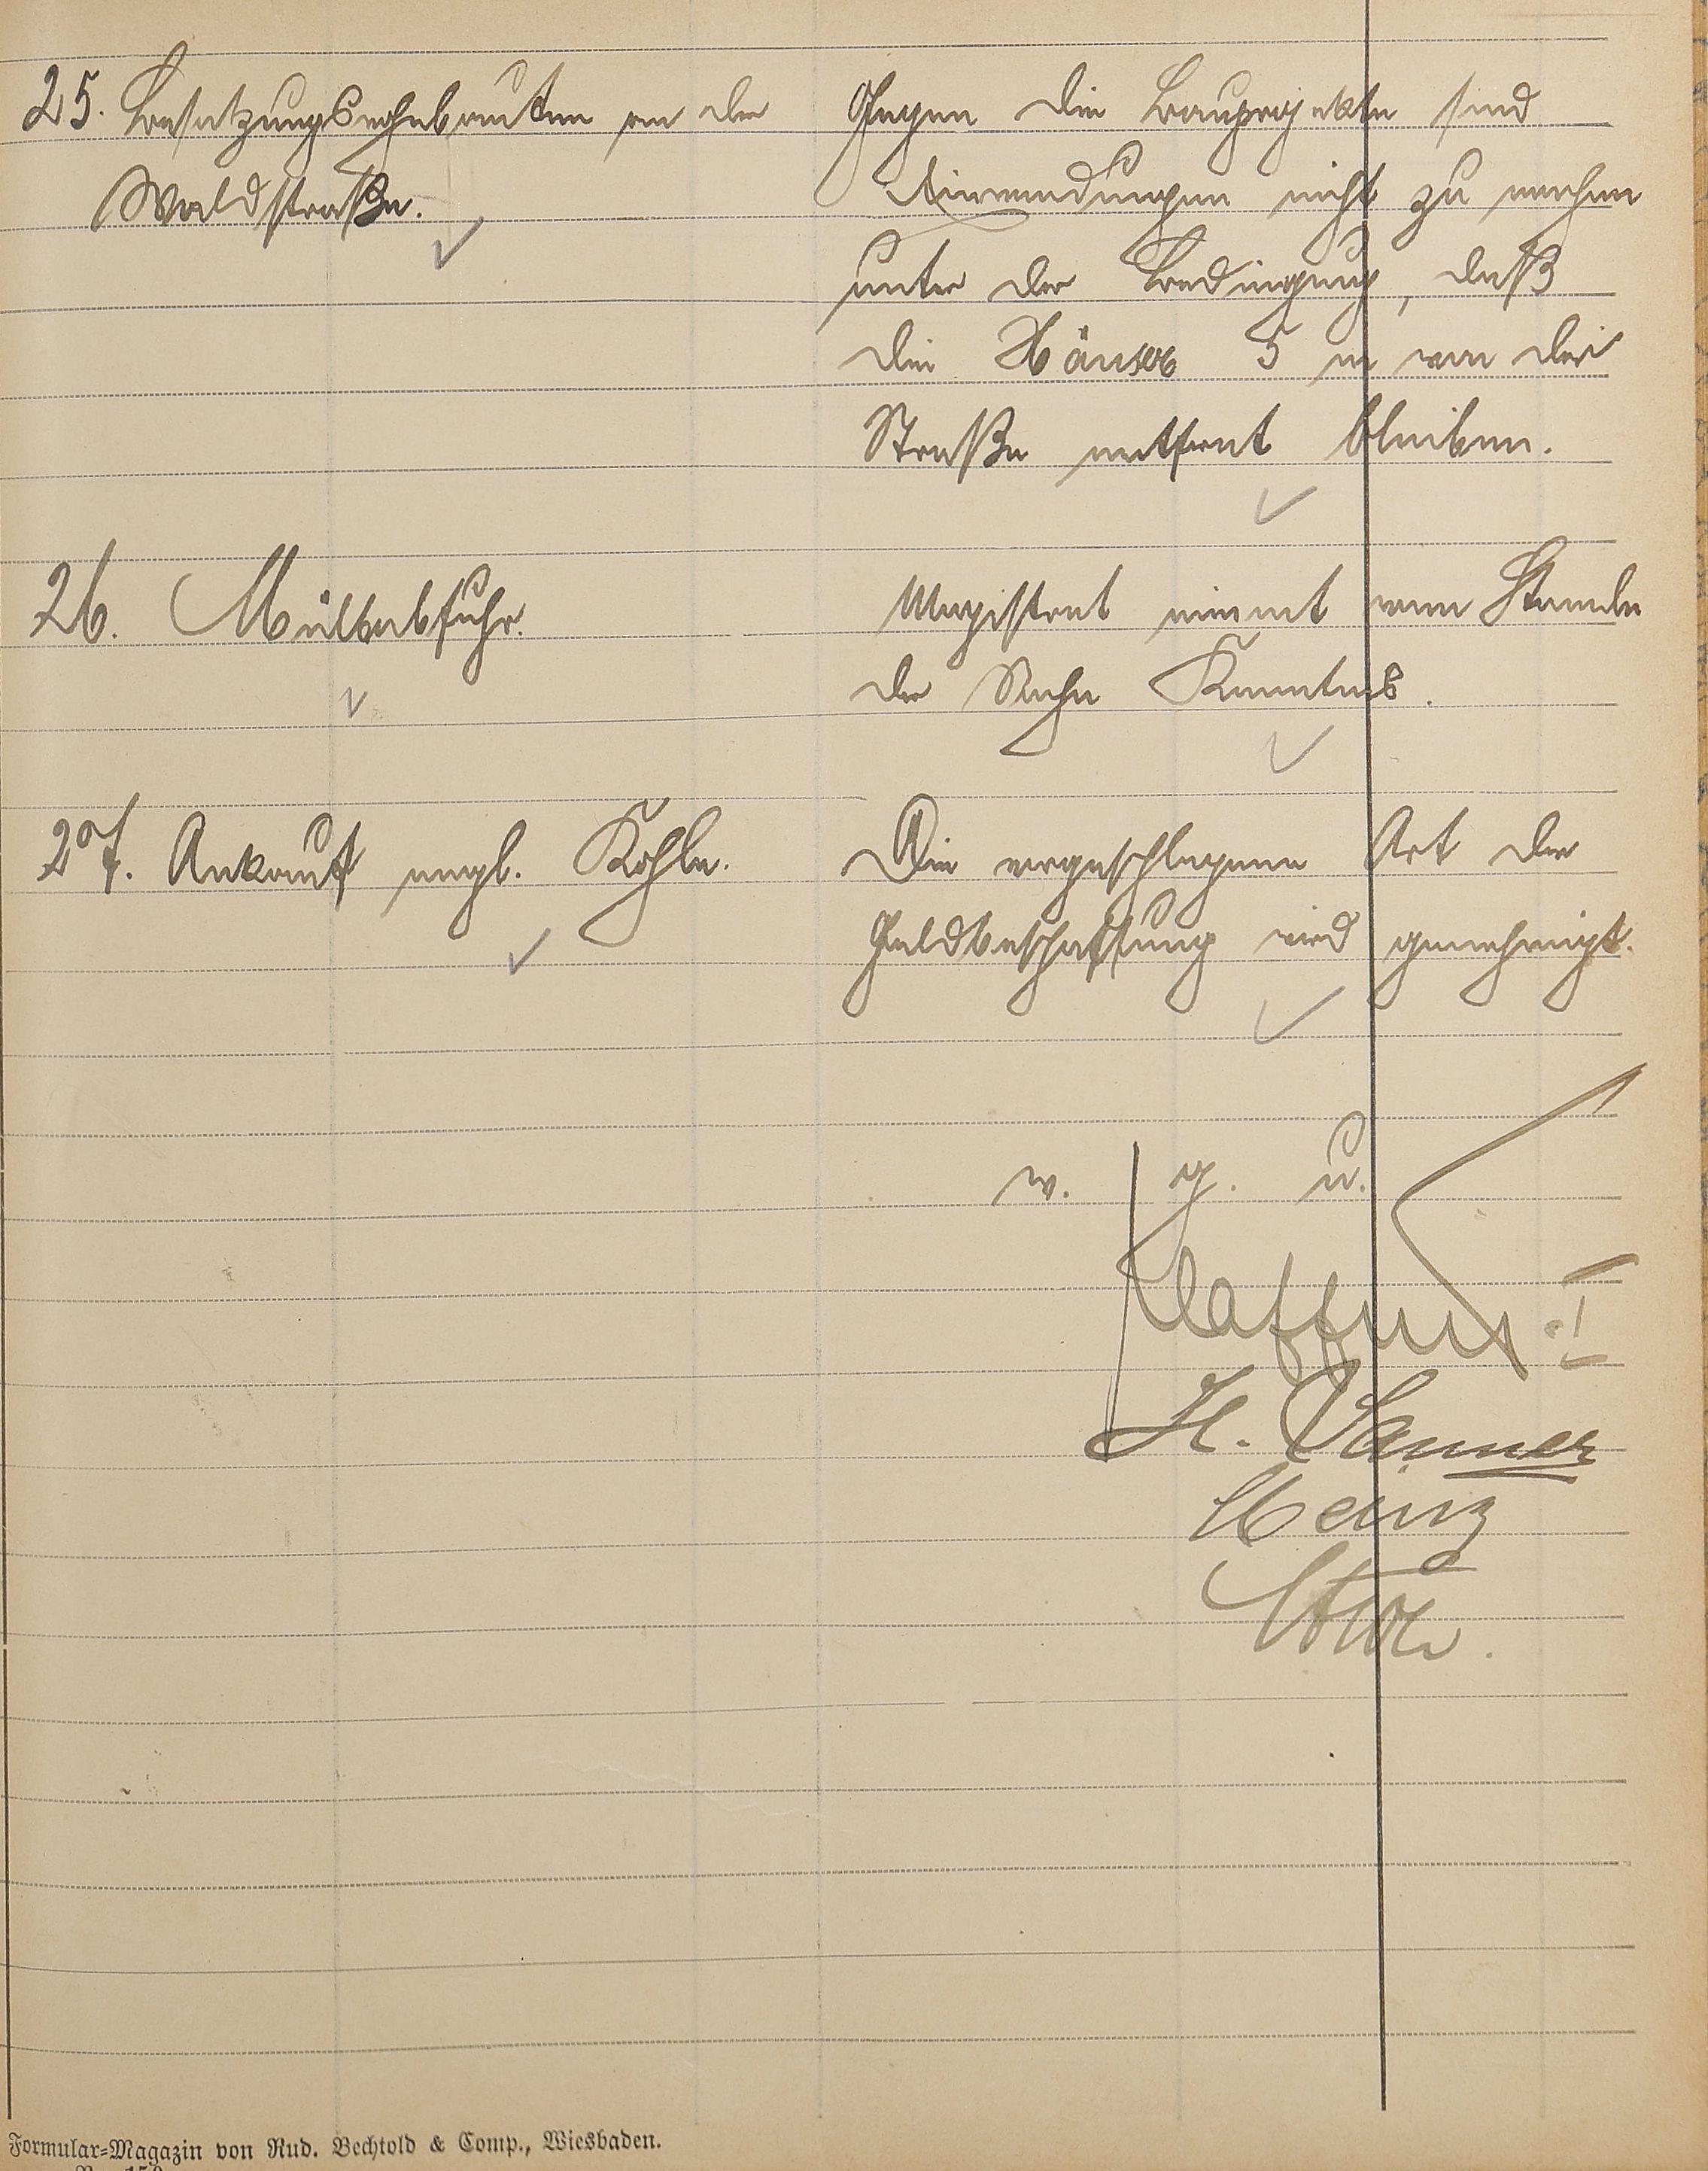 25. Besatzungsneubauten an der
Waldstraße.
Gegen die Bauprojekte sind
Einwendungen nicht zu machen
unter der Bedingung, daß
die Häuser 5 m von der
Straße entfernt bleiben.
26. Müllabfuhr.
Magistrat nimmt vom Stande
der Sache Kenntnis.
27. Ankauf engl. Kohle.
Die vorgeschlagene Art der
Geldbeschaffung wird genehmigt.
v. g. u.
H. Sanner
Heinz
Formular-Magazin von Rud. Bechtold & Comp., Wiesbaden.